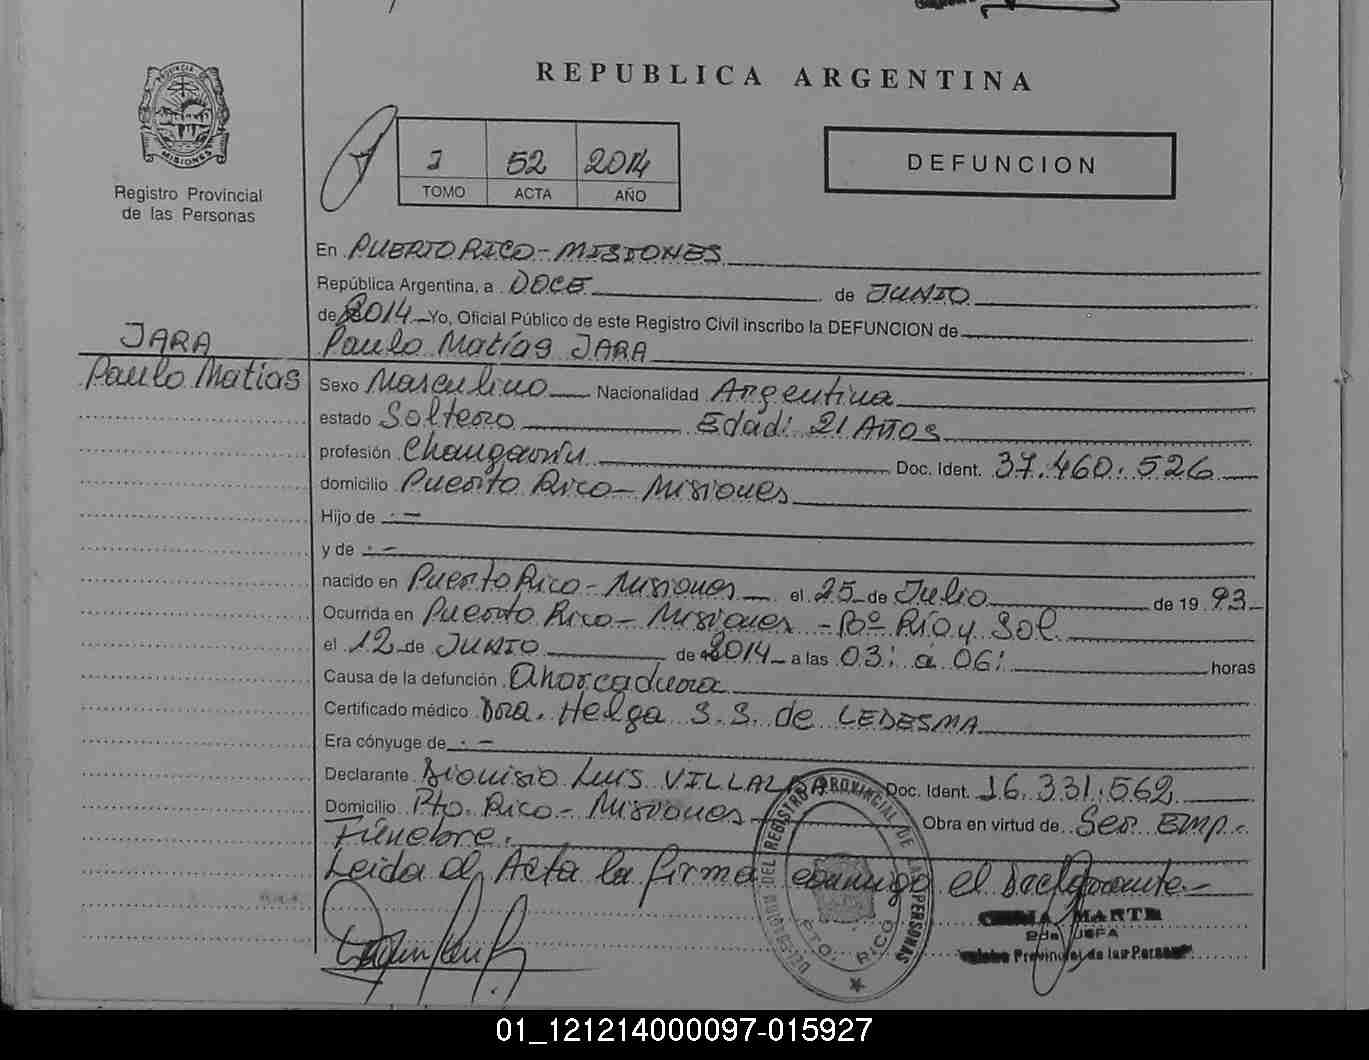 REPUBLICA ARGENTINA
PROVINCIA DE
MISIONES
Registro Provincial
de las Personas
J 52 2014
TOMO ACTA AÑO
DEFUNCION
En PUERTO RICO - MISIONES
República Argentina, a DOCE de JUNIO
de 2014 Yo, Oficial Público de este Registro Civil inscribo la DEFUNCION de
JARA
Paulo Matías JARA
Paulo Matias
Sexo Masculino Nacionalidad Argentina
estado Soltero Edad: 21 AÑOS
profesión Changarín Doc. Ident. 37.460.526
domicilio Puerto Rico - Misiones
Hijo de . -
y de . -
nacido en Puerto Rico - Misiones el 25 de Julio de 19 93
Ocurrida en Puerto Rico - Misiones - Bº Río y Sol
el 12 de JUNIO de 2014 a las 03: a 06: horas
Causa de la defunción Ahorcadura
Certificado médico Dra. Helga S.S. de LEDESMA
Era cónyuge de . -
Declarante Dionisio Luis VILLALBA Doc. Ident. 16.331.562
Domicilio Pto. Rico - Misiones Obra en virtud de Ser. Emp.
Fúnebre.
Leida el Acta la firma conmigo el Declarante -
DEL REGISTRO PROVINCIAL DE LAS PERSONAS
PTO. RICO
MARTA
JEFA
Provincial de las Personas
01_121214000097-015927